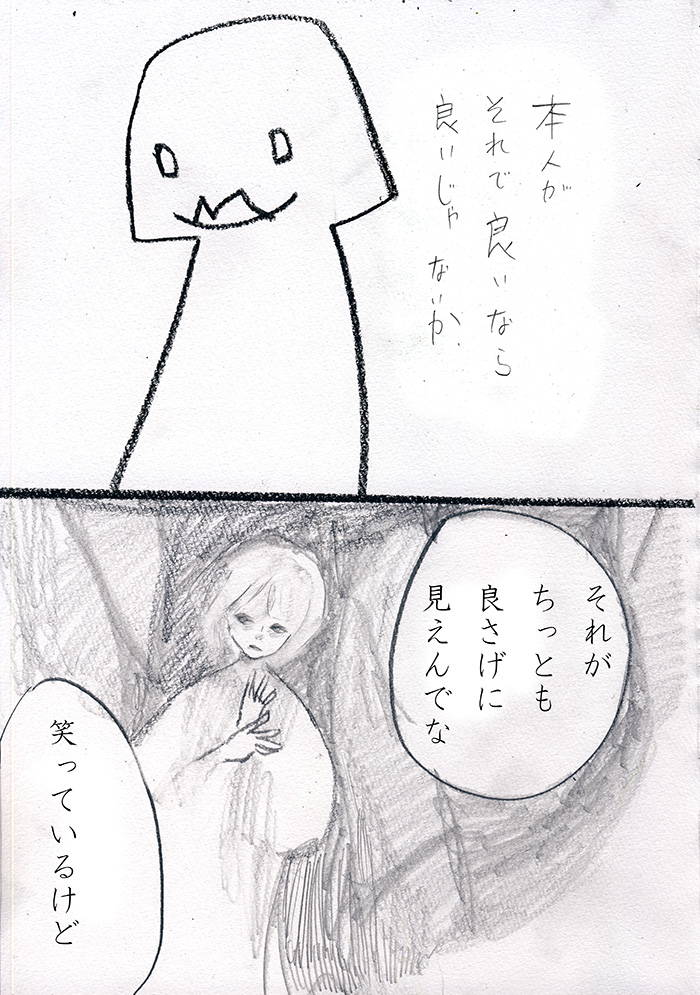 本人が
それで良いなら
良いじゃないか
それが
ちっとも
良さげに
見えんでな
笑っているけど